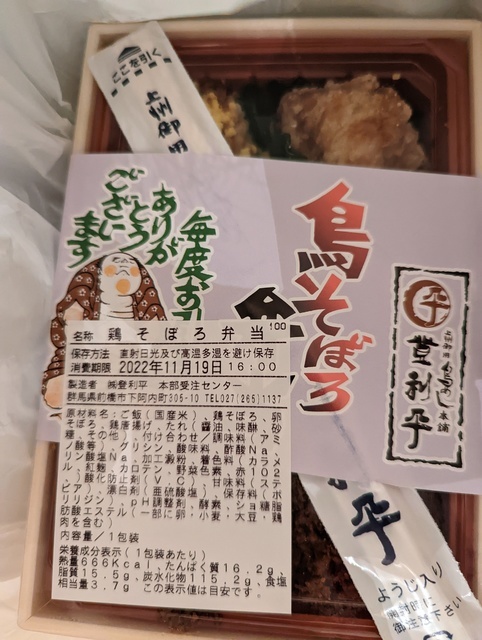 ここを引く
上州御用
毎度
ありがとう
ございます
鳥そぼろ
平
上州御用
本舗
登利平
平
ようじ入り
開封時に
御注意下さい
100
名称 鶏そぼろ弁当
保存方法 直射日光及び高温多湿を避け保存
消費期限 2022年11月19日 16:00
製造者 ㈱登利平 本部受注センター
群馬県前橋市下阿内町305-10 TEL027(265)1137
原材料名:ご飯(国産米)、鶏そぼろ、卵
そぼろ、鶏唐揚げ、たれ(醤油、味醂、砂
糖、その他)、付け合わせ/調味料(アミ
ノ酸等)、グリシン、酸味料、酢酸Na、
リン酸塩Na、加工澱粉、着色料(カラメ
ル、紅麹、カロテン、野菜色素、赤102
)、酸化防止剤(V.C)、甘味料(ステ
ビア)、漂白剤(亜硫酸塩)、保存料(ポ
リリジン)、pH調整剤、酵素、ショ糖脂
肪酸エステル(一部に卵・小麦・大豆・鶏
肉を含む)
内容量/1包装
栄養成分表示(1包装あたり)
熱量666Kcal、たんぱく質16.2g、
脂質15.5g、炭水化物115.2g、食塩
相当量3.7g この表示値は目安です。